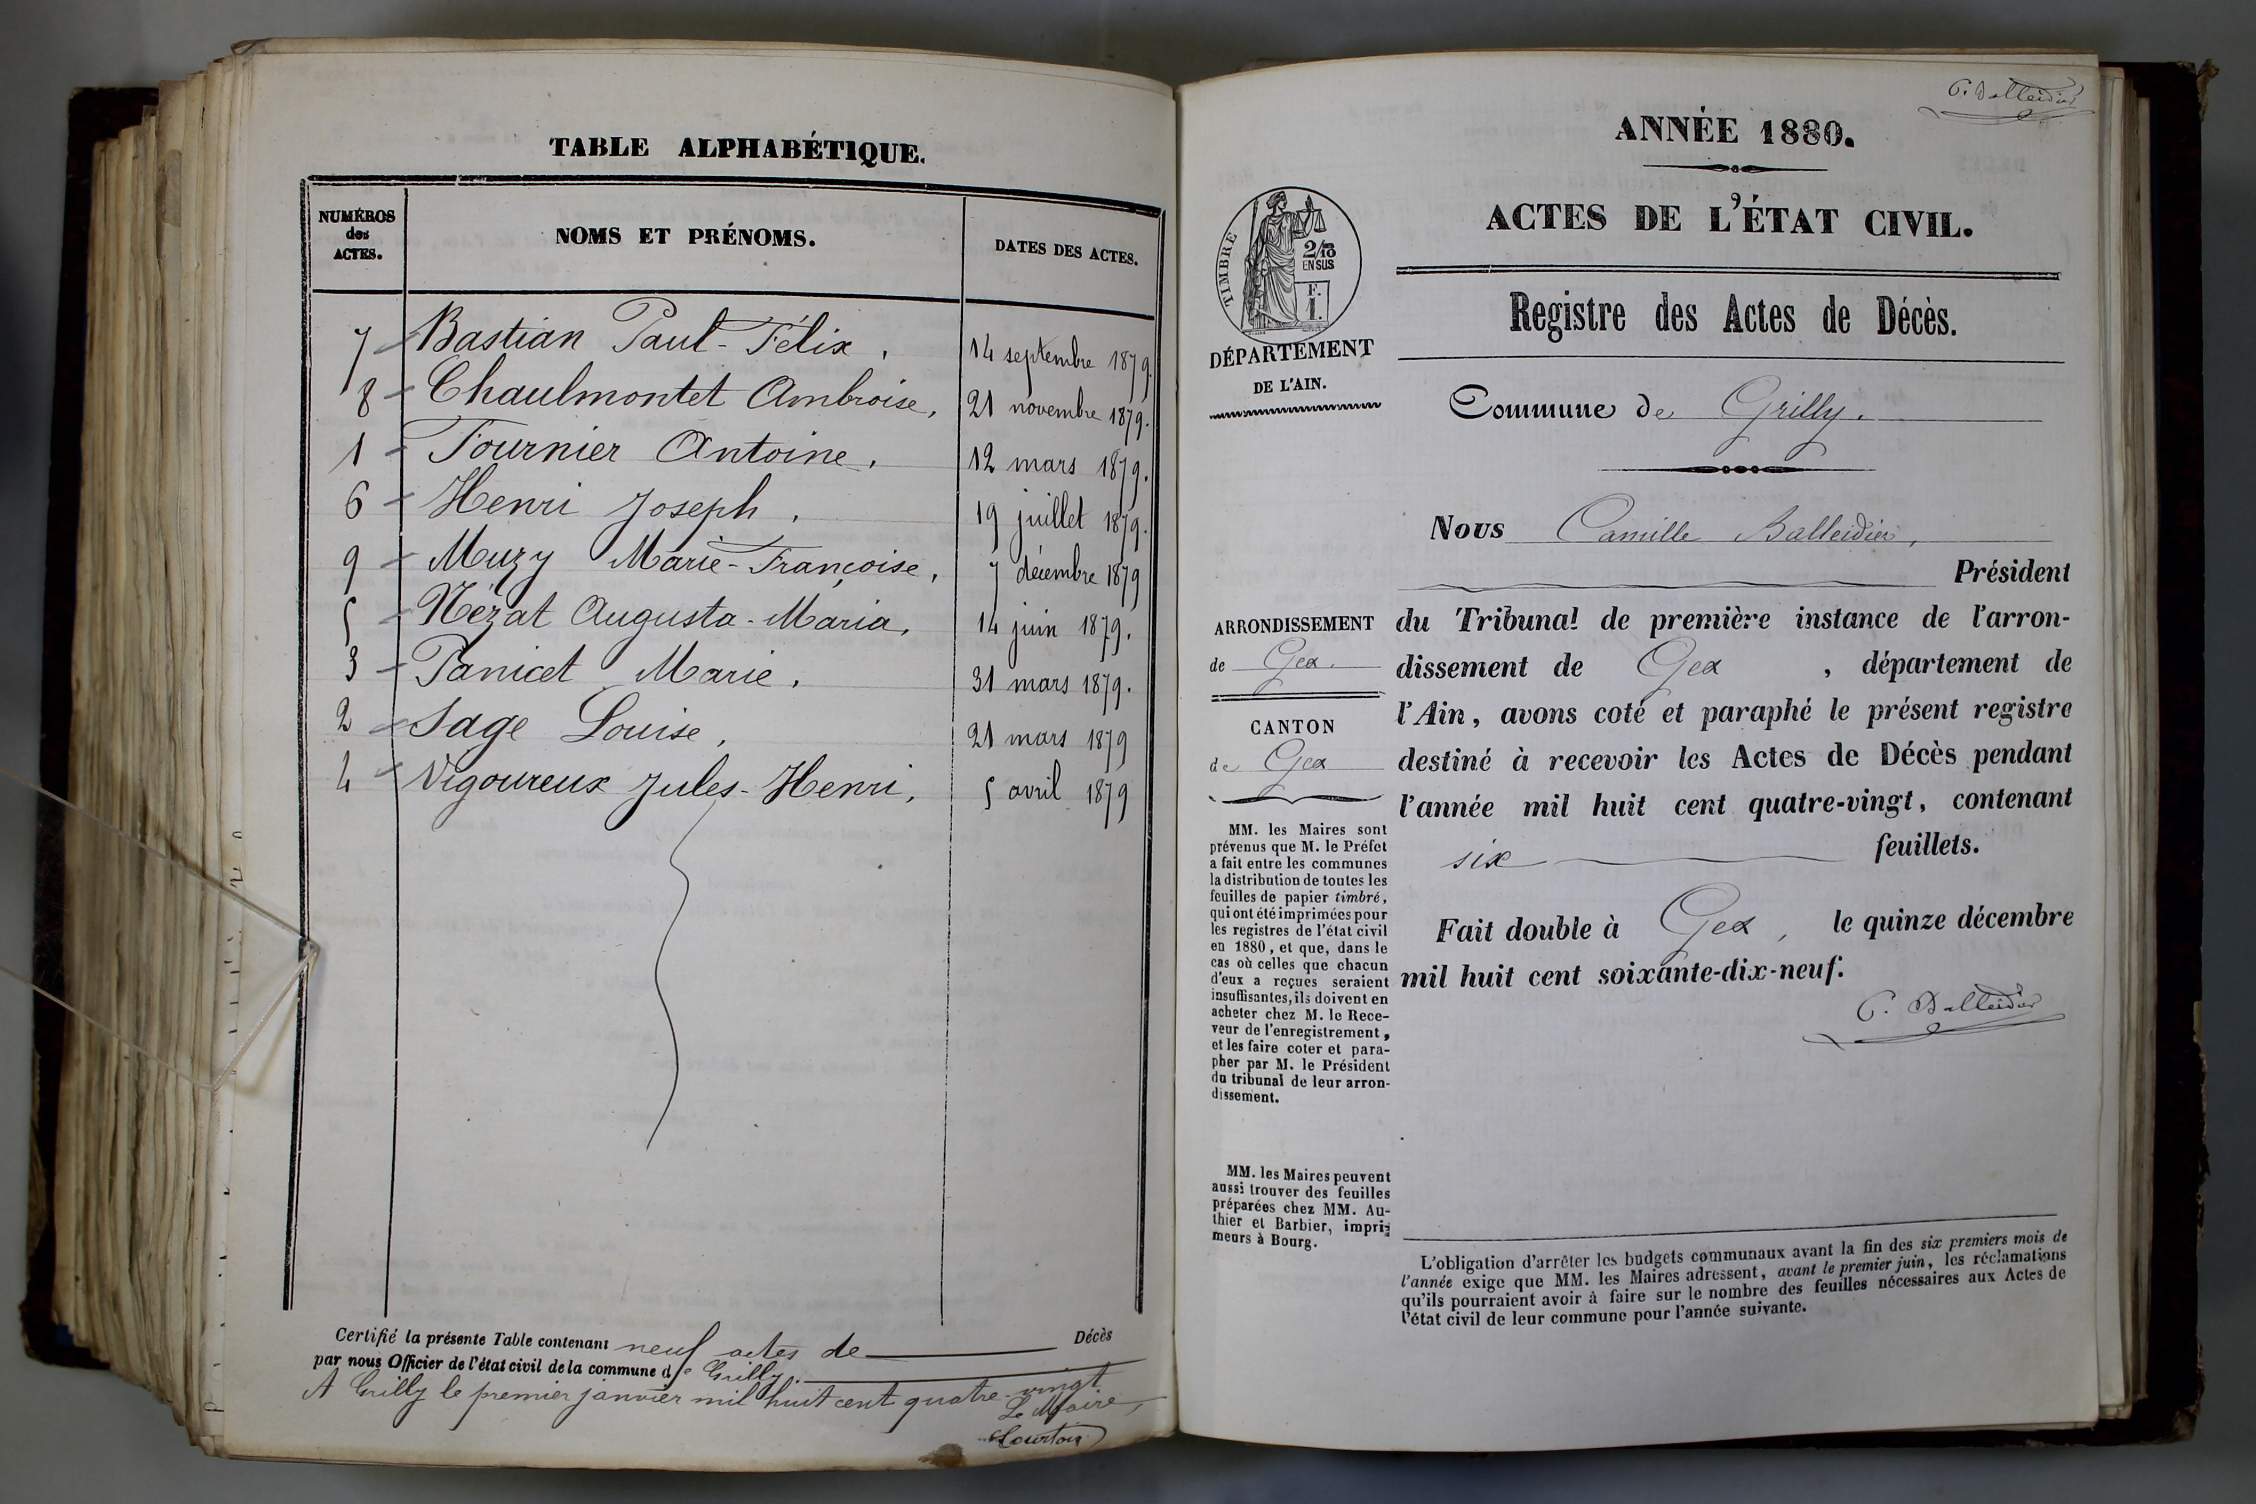 TABLE ALPHABÉTIQUE.
NUMÉROS
des
ACTES.
NOMS ET PRÉNOMS.
DATES DES ACTES.
7 Bastian Paul-Félix. 14 septembre 1879.
8 Chaulmontet Ambroise, 21 novembre 1879.
1 Fournier Antoine. 12 mars 1879.
6 Henri Joseph. 19 juillet 1879.
9 Muzy Marie-Françoise, 7 décembre 1879
5 Nézat Augusta-Maria, 14 juin 1879.
3 Panicet Marie. 31 mars 1879.
2 Sage Louise, 21 mars 1879
4 Vigoureux Jules-Henri, 5 avril 1879
Certifié la présente Table contenant neuf actes de Décès
par nous Officier de l'état civil de la commune de Grilly.
A Grilly le premier janvier mil huit cent quatre-vingt
Le Maire,
Courtois
C. Balleidier
ANNÉE 1880.
ACTES DE L'ÉTAT CIVIL.
TIMBRE
2/10
EN SUS
F.
1.
DÉPARTEMENT
DE L'AIN.
Registre des Actes de Décès.
Commune de Grilly.
Nous Camille Balleidier,
Président
du Tribunal de première instance de l'arron-
dissement de Gex, département de
l'Ain, avons coté et paraphé le présent registre
destiné à recevoir les Actes de Décès pendant
l'année mil huit cent quatre-vingt, contenant
six feuillets.
Fait double à Gex, le quinze décembre
mil huit cent soixante-dix-neuf.
C. Balleidier
ARRONDISSEMENT
de Gex.
CANTON
de Gex
MM. les Maires sont
prévenus que M. le Préfet
a fait entre les communes
la distribution de toutes les
feuilles de papier timbré,
qui ont été imprimées pour
les registres de l'état civil
en 1880, et que, dans le
cas où celles que chacun
d'eux a reçues seraient
insuffisantes, ils doivent en
acheter chez M. le Rece-
veur de l'enregistrement,
et les faire coter et para-
pher par M. le Président
du tribunal de leur arron-
dissement.
MM. les Maires peuvent
aussi trouver des feuilles
préparées chez MM. Au-
thier et Barbier, impri-
meurs à Bourg.
L'obligation d'arrêter les budgets communaux avant la fin des six premiers mois de
l'année exige que MM. les Maires adressent, avant le premier juin, les réclamations
qu'ils pourraient avoir à faire sur le nombre des feuilles nécessaires aux Actes de
l'état civil de leur commune pour l'année suivante.